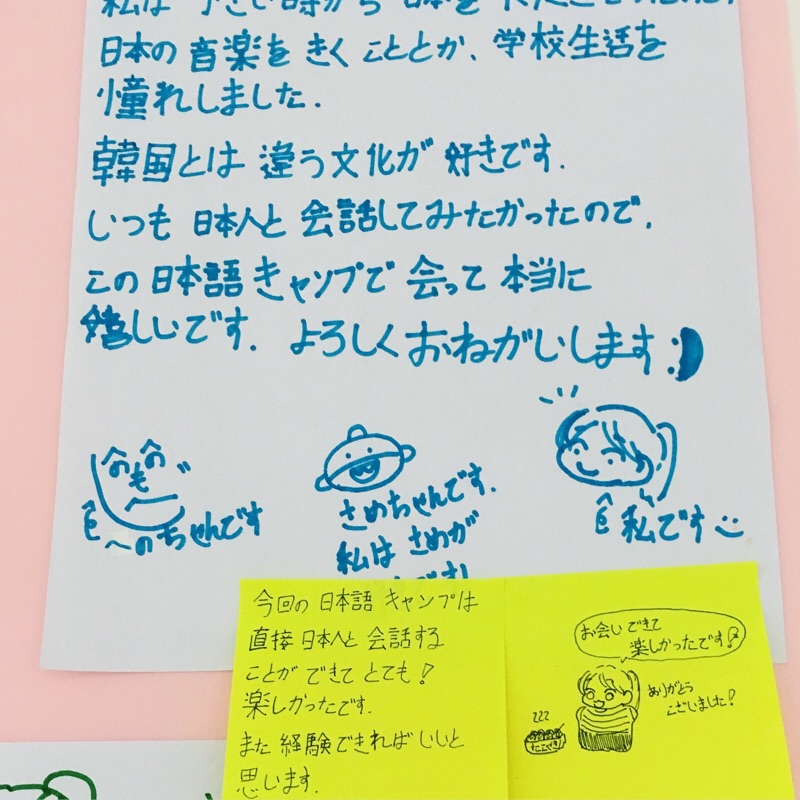 私は 小さい時から 日本を
日本の 音楽を きく こととか、学校生活を
憧れしました.
韓国とは 違う文化が 好きです.
いつも 日本人と 会話してみたかったので,
この 日本語 キャンプで 会って 本当に
嬉しいです. よろしくおねがいします:)
へのへの
も
へ
へのちゃんです
さめちゃんです.
私は さめが
私です
今回の 日本語 キャンプは
直接 日本人と 会話する
ことが できて とても!
楽しかったです.
また 経験できれば いいと
思います.
お会いできて
楽しかったです!
ありがとう
ございました!
たこやき